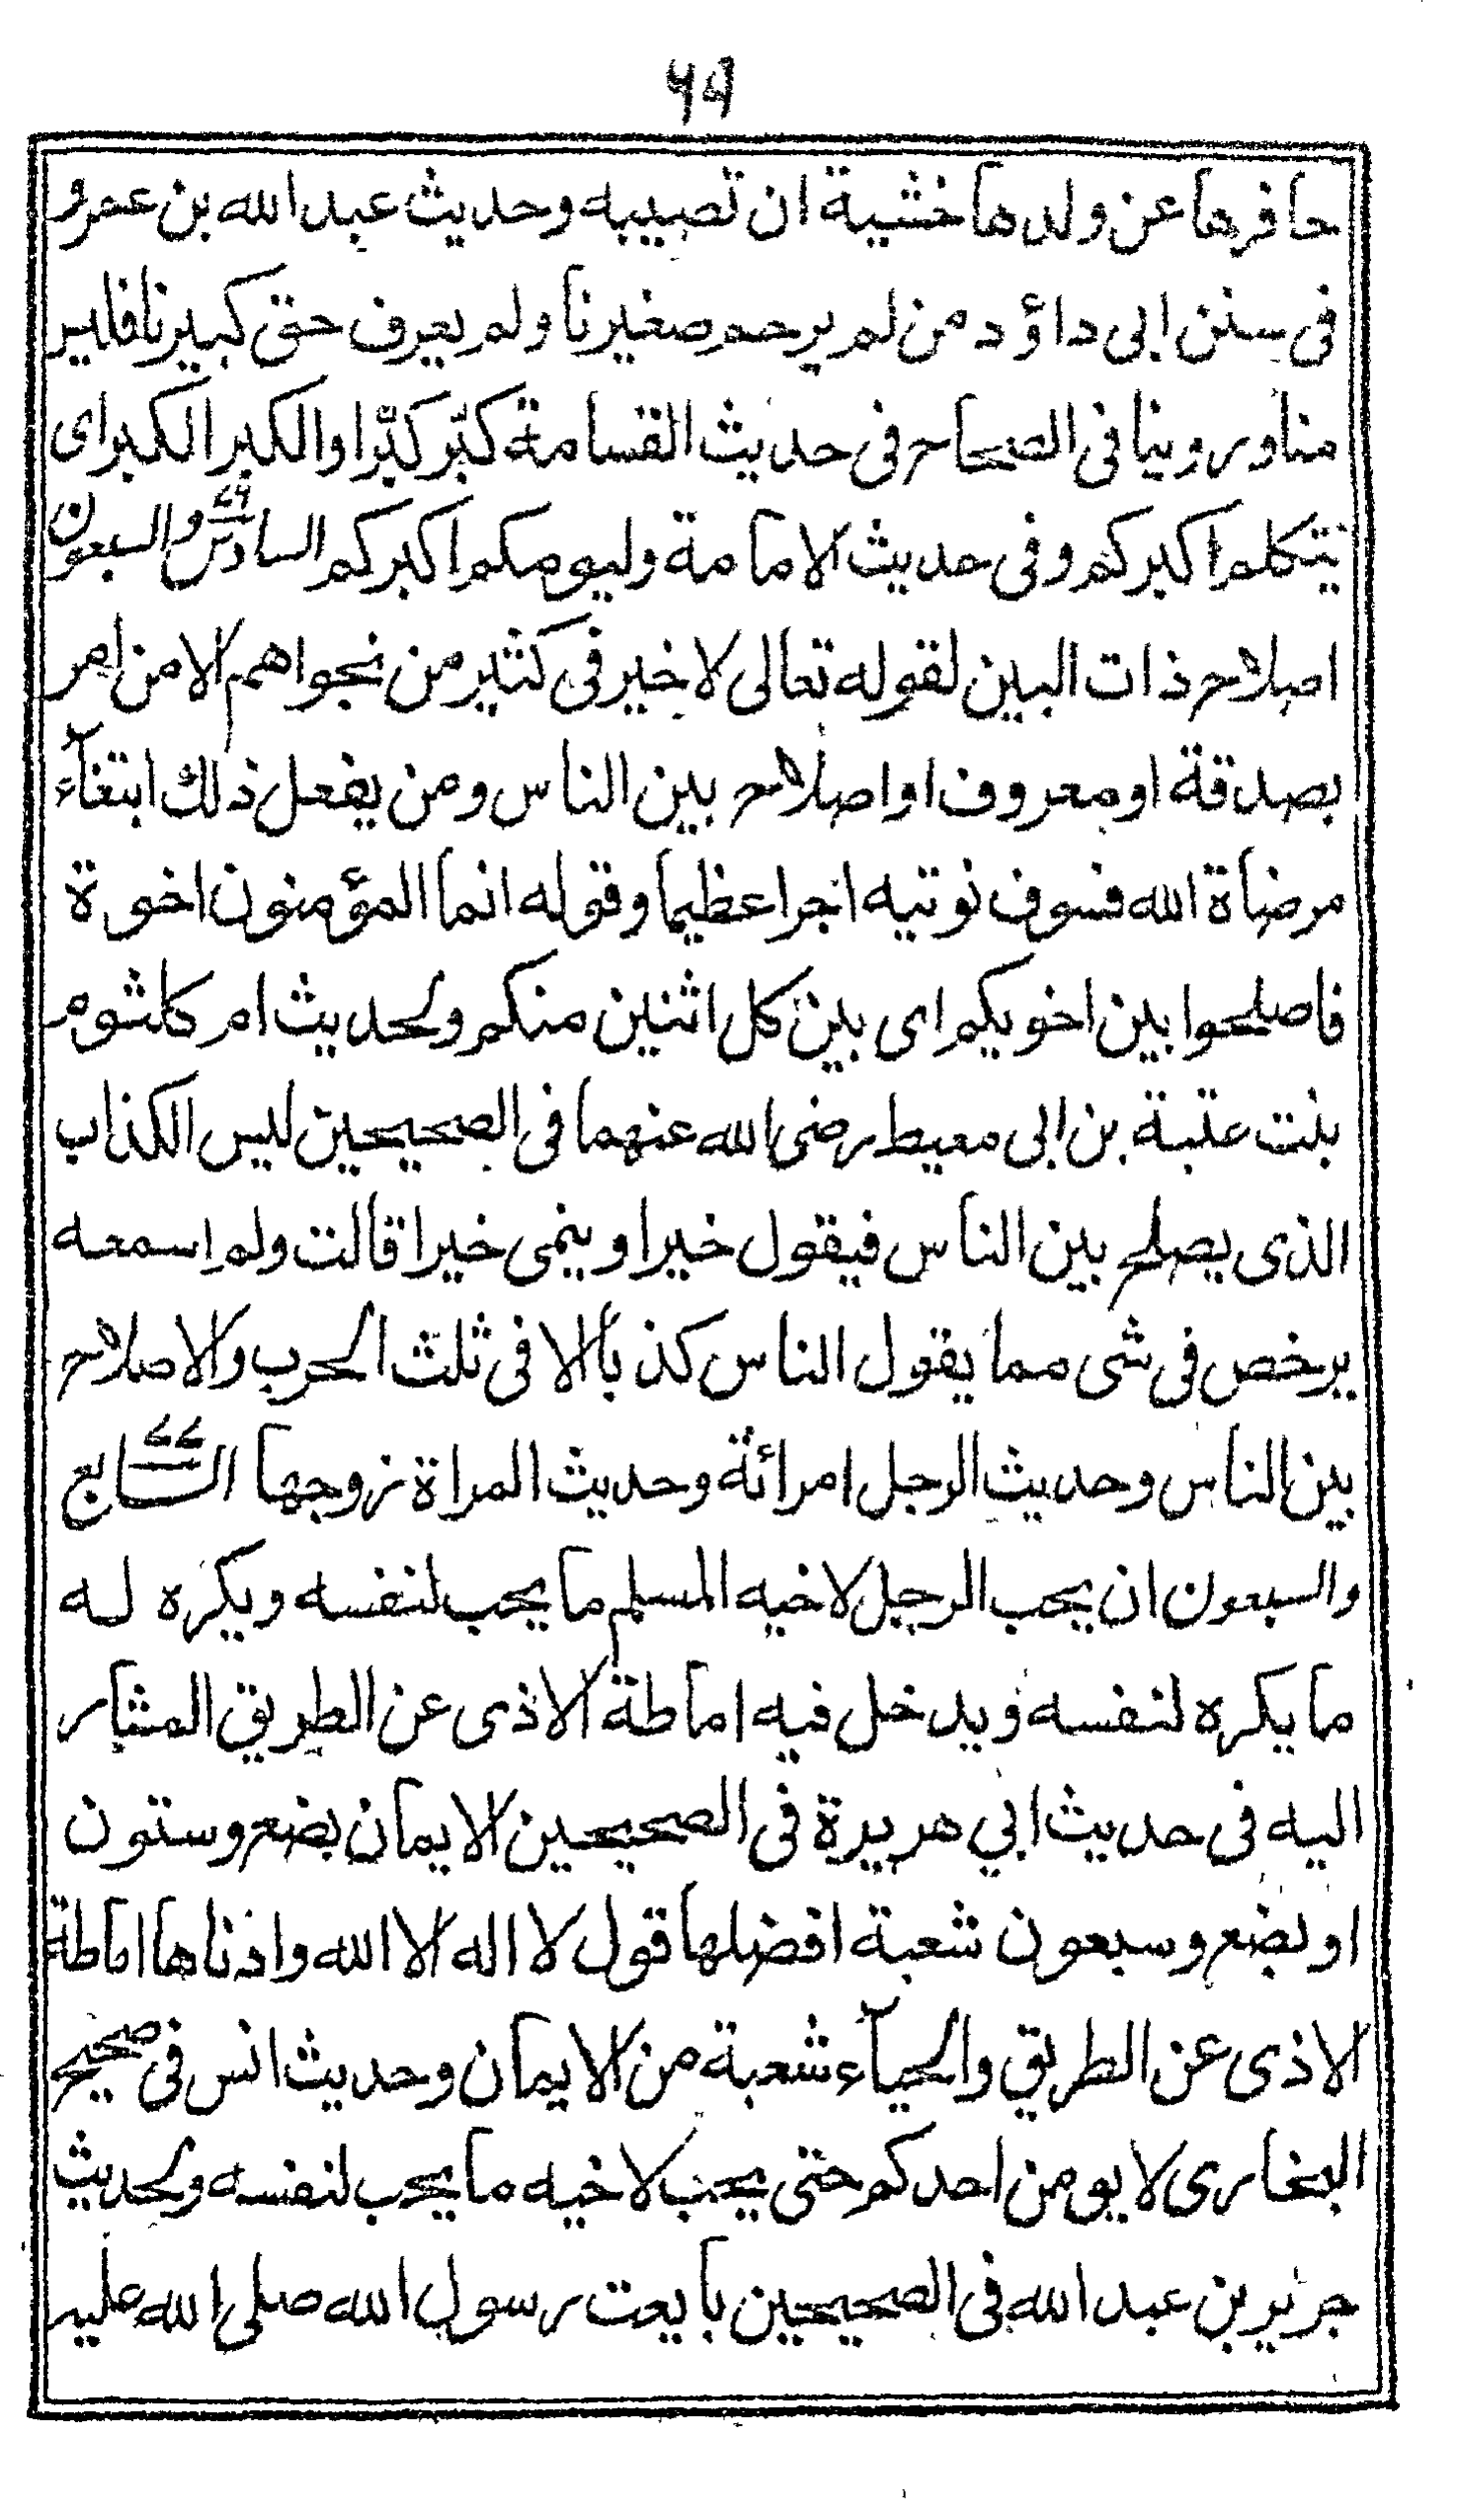 ٦٩
حافرها عن ولدها خشية ان تصيبه وحديث عبد الله بن عمرو
فى سنن ابى داؤد من لم يرحم صغيرنا ولم يعرف حق كبيرنا فليس
منا وروينا فى الصحاح فى حديث القسامة كبّر كبّر او الكبر الكبر اى
يتكلم اكبركم وفى حديث الامامة وليومكم اكبركم السادس والسبعون ٧٦
اصلاح ذات البين لقوله تعالى لا خير فى كثير من نجواهم الا من امر
بصدقة او معروف او اصلاح بين الناس ومن يفعل ذلك ابتغآء
مرضاة الله فسوف نوتيه اجرا عظيما وقوله انما المؤمنون اخوة
فاصلحوا بين اخويكم اى بين كل اثنين منكم ولحديث ام كلثوم
بنت عتبة بن ابى معيط رضى الله عنهما فى الصحيحين ليس الكذاب
الذى يصلح بين الناس فيقول خيرا او ينمى خيرا قالت ولم اسمعه
يرخص فى شى مما يقول الناس كذبا الا فى ثلث الحرب والاصلاح
بين الناس وحديث الرجل امرائة وحديث المراة زوجها السابع ٧٧
والسبعون ان يحب الرجل لاخيه المسلم ما يحب لنفسه ويكره له
ما يكره لنفسه ويدخل فيه اماطة الاذى عن الطريق المشار
اليه فى حديث ابي هريرة فى الصحيحين الايمان بضع وستون
او بضع وسبعون شعبة افضلها قول لا اله الا الله وادناها اماطة
الاذى عن الطريق والحيآء شعبة من الايمان وحديث انس فى صحيح
البخارى لا يومن احدكم حتى يحب لاخيه ما يحب لنفسه ولحديث
جرير بن عبد الله فى الصحيحين بايعت رسول الله صلى الله عليه